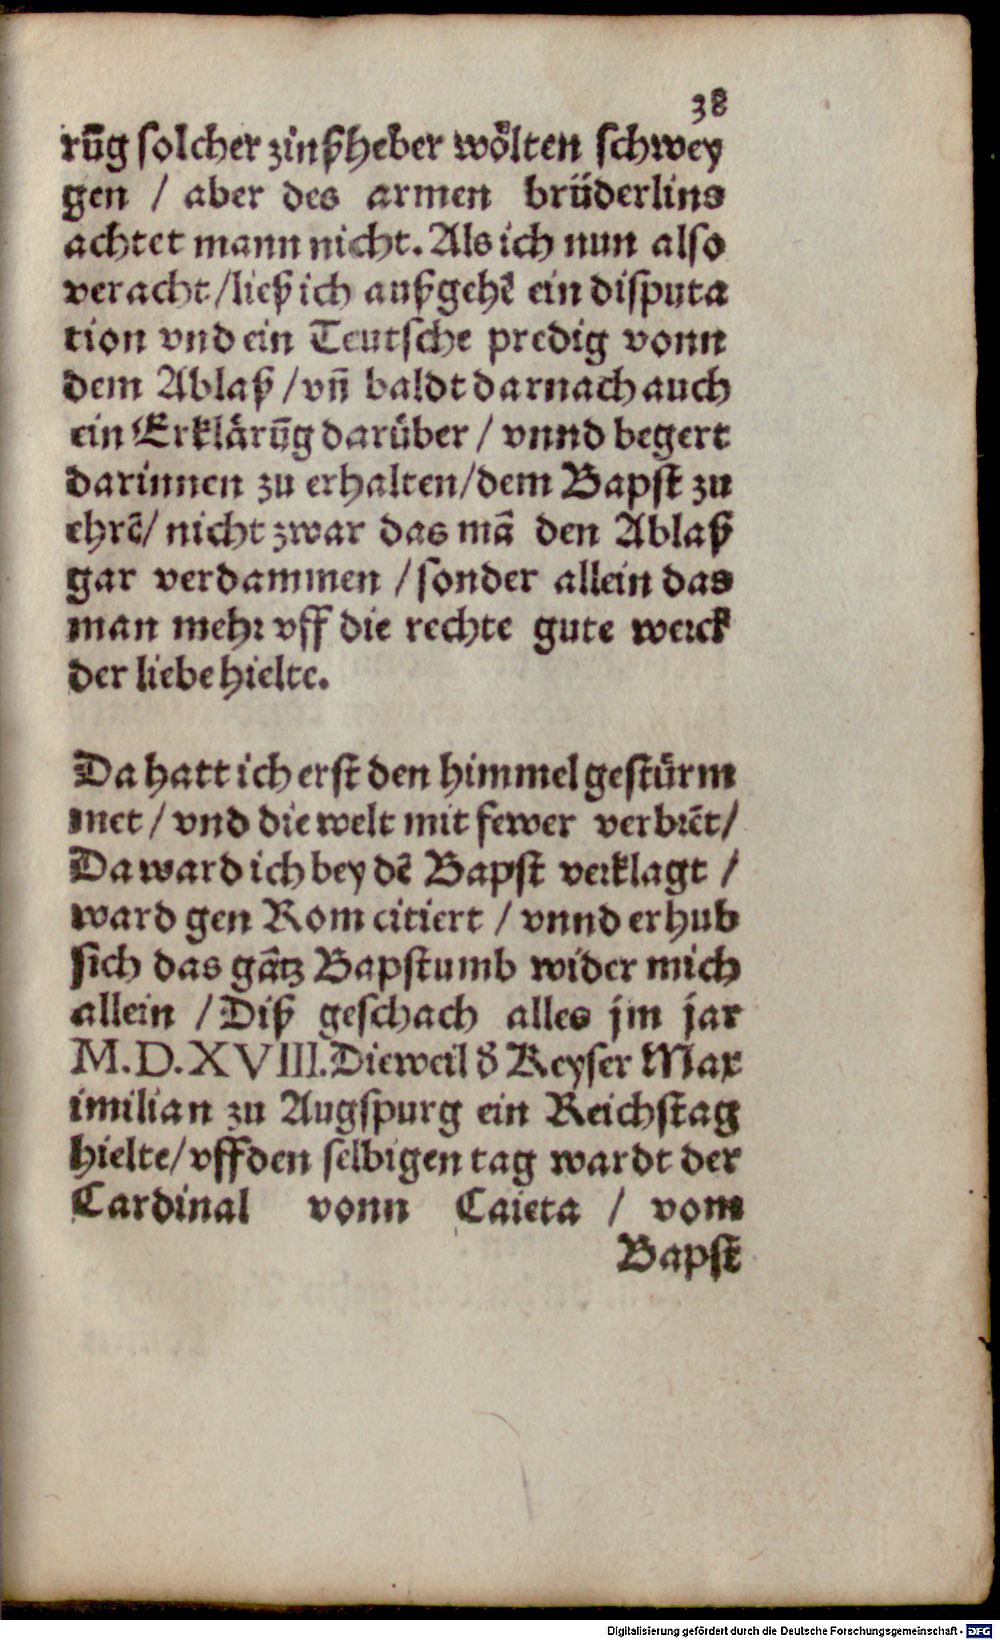 38
rūg solcher zinßheber wölten schwey
gen / aber des armen brüderlins
achtet mann nicht. Als ich nun also
veracht / ließ ich außgehē ein disputa
tion vnd ein Teutsche predig vonn
dem Ablaß / vn̄ baldt darnach auch
ein Erklärūg darüber / vnnd begert
darinnen zu erhalten / dem Bapst zu
ehrē / nicht zwar das mā den Ablaß
gar verdammen / sonder allein das
man mehr vff die rechte gute werck
der liebe hielte.
Da hatt ich erst den himmel gestürm
met / vnd die welt mit fewer verbrēt /
Da ward ich bey dē Bapst verklagt /
ward gen Rom citiert / vnnd erhub
sich das gātz Bapstumb wider mich
allein / Diß geschach alles jm jar
M.D.XVIII. Dieweil d̄ Keyser Max
imilian zu Augspurg ein Reichstag
hielte / vff den selbigen tag wardt der
Cardinal vonn Caieta / vom
Bapst
Digitalisierung gefördert durch die Deutsche Forschungsgemeinschaft - DFG